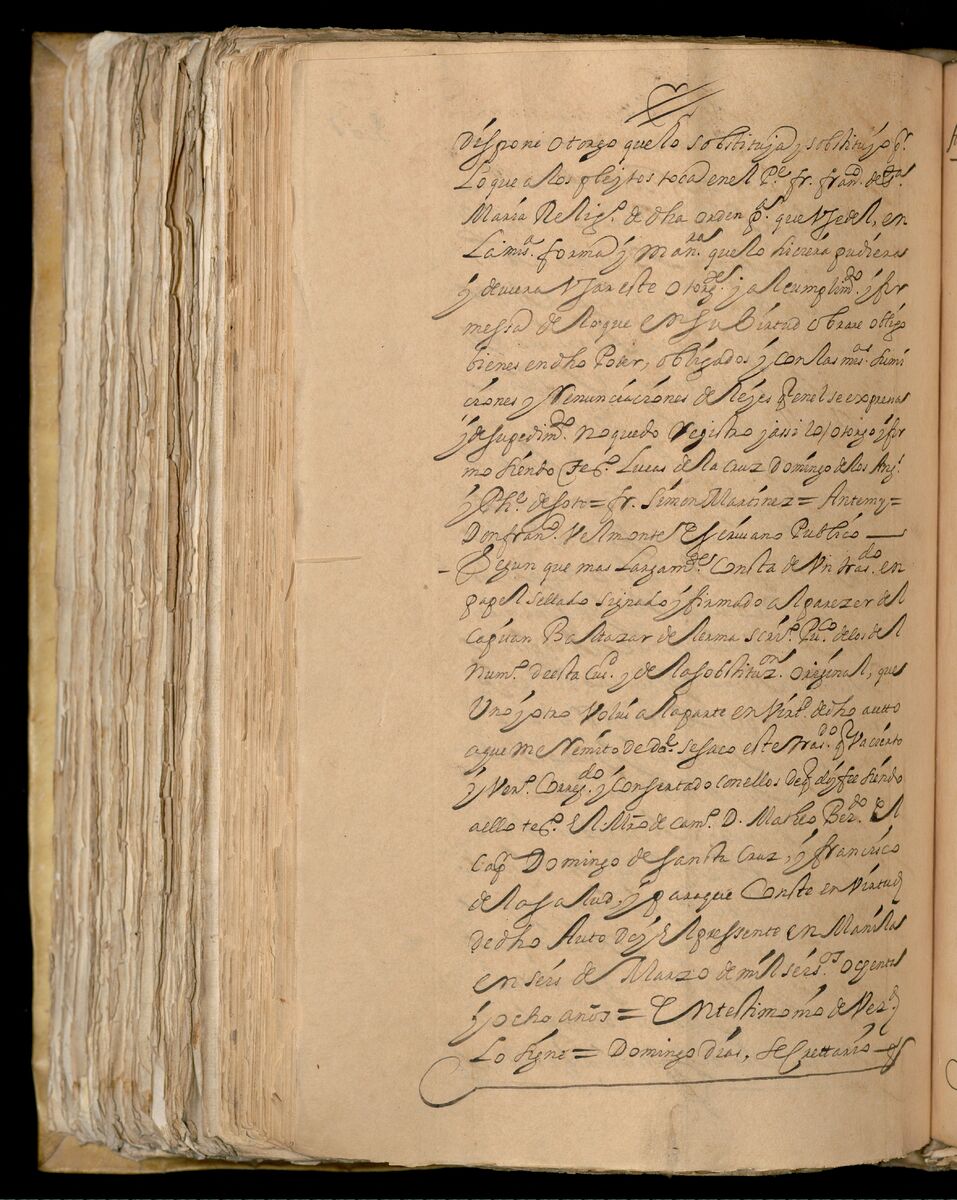 dispone otorgo que lo sobstituia y sobstituyo pa.
lo que a los pleytos toca en el Pe. fr. Frando. de Sta.
Maria Religo. de dha orden pa. que Vse del, en
la misa. forma y manra. que lo hiciera pudiera
y deuiera Vsar este otorgte. y al cumplimto. y fir
messa de lo que en su Birtud obrare obligo
bienes en dho Poder, obligados y con las mesas. sumi
ciones y Renunciaciones de leyes q en el se expresas
y de su pedimto. no quedo Registro y assi lo otorgo y fir
mo siendo tesgo. Lucas de la Cruz Domingo de los Anjs.
y Phe. de soto = fr. Simon Martinez = Antemy =
Don Frando. Velmonte Escriuano Publico
Segun que mas largamte. Consta de Vn trasdo. en
papel sellado signado y firmado al parezer del
Capitan Baltazar de Lerma scrisno. Puco. de los del
Numo. de esta Ciu. y de la sobstituzon. original, que
Uno y otro Volui a la parte en Virtd. de dho autto
a que me Remito de do. se saco este trasdo. q Va cierto
y Vero. Corregdo. y Consertado con ellos de q doy fee siendo
a ello tesgo. El Mro de camo. D. Matheo Berdo. El
Capn Domingo de Sancta Cruz, y francisco
de la salud, y para que Conste en Virtud
de dho Auto doy El pressente en Manila
en seis de Marzo de mil seisos. ochenta
y ocho años = En testimonio de Verd.
Lo signe = Domingo Dias, Secrettario